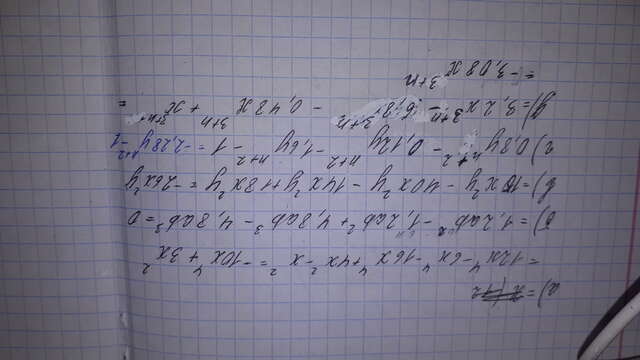 а) =
= 12x⁴ - 6x⁴ - 16x⁴ + 4x² - x² = -10x⁴ + 3x²
б) = 1,2ab² - 1,2ab² + 4,8ab³ - 4,8ab³ = 0
в) = 10x²y - 40x²y - 14x²y + 18x²y = -26x²y
г) 0,8yⁿ⁺² - 0,12yⁿ⁺² - 1,6yⁿ⁺² - 1 = -2,28yⁿ⁺² - 1
д) = 3,2x³⁺ⁿ - 6,8x³⁺ⁿ - 0,48x³⁺ⁿ + x³⁺ⁿ =
= -3,08x³⁺ⁿ